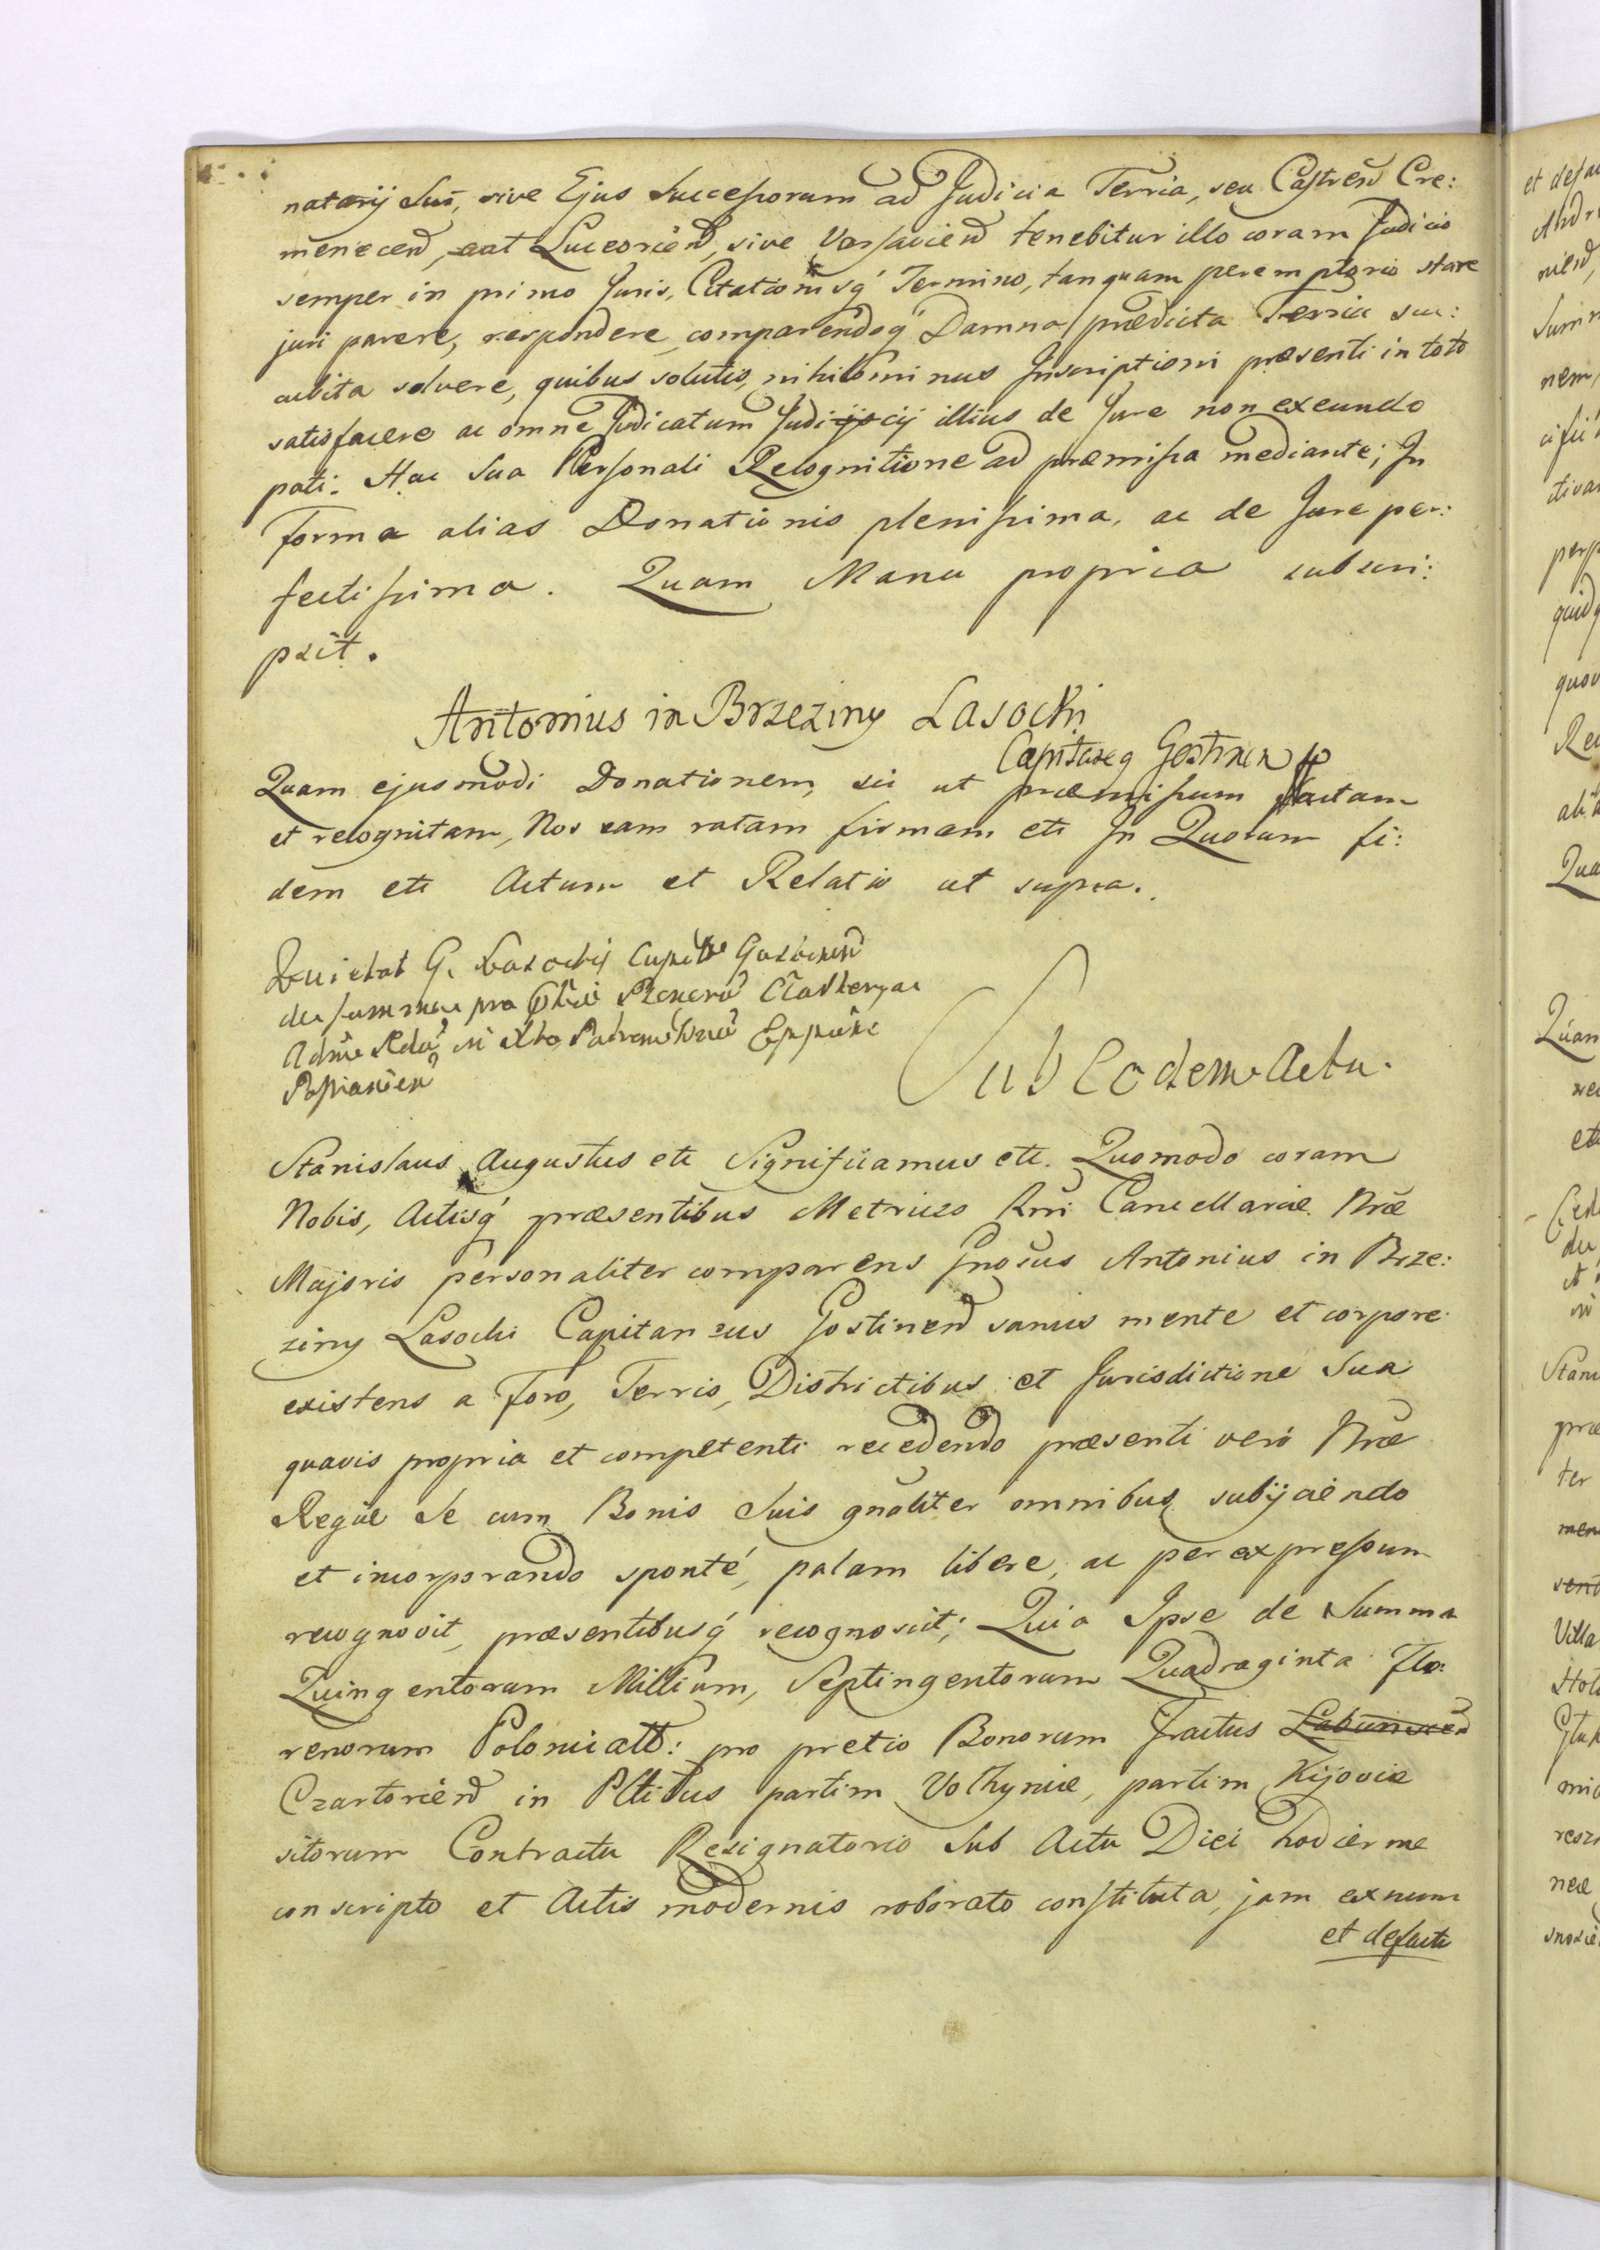 natarij Sui, sive Ejus Successorum ad Judicia Terria, seu Castren Cre:
menecen, aut Luceorien, sive Varsavien tenebitur illo coram Judicio
semper in primo Juris, Citationisq́ Termino, tanquam peremptorio stare
juri parere, respondere, comparendoq́ Damna prædicta Terria suc:
cubita solvere, quibus solutis, nihilominus Inscriptioni præsenti in toto
satisfacere ac omne Judicatum Judicij illius de Jure non exeundo
pati: Hac Sua Personali Recognitione ad præmissa mediante; In
forma alias Donationis plenissima, ac de Jure per:
fectissima. Quam Manu propria subscri:
psit.
Antonius in Brzeziny Lasocki
Capitaneq Gostinen
Quam ejusmodi Donationem, sic ut præmissum factam
et recognitam, Nos eam ratam firmam etc In Quorum fi:
dem etc Actum et Relatio ut supra.
Quietat G. Lasockij Capite Gostinen
de summa pro
Sub Eodem Actu.
Stanislaus Augustus etc Significamus etc. Quomodo coram
Nobis, Actisq́ præsentibus Metrices Rni Cancellariæ Nræ
Majoris personaliter comparens Gnosus Antonius in Brze:
ziny Lasocki Capitaneus Gostinen sanus mente et corpore
existens a Foro, Terris, Districtibus et Jurisdictione Sua
quavis propria et competenti recedendo præsenti vero Nræ
Regiæ Se cum Bonis Suis gnaliter omnibus subijciendo
et incorporando sponté, palam libere, ac per expressum
recognovit, præsentibusq́ recognoscit; Quia Ipse de Summa
Quingentorum Millium, Septingentorum Quadraginta Flo:
renorum Polonicall: pro pretio Bonorum Tractus Labunscen
Czartorien in Pltibus partim Volhyniæ, partim Kijoviæ
sitorum Contractu Resignatorio Sub Actu Diei hodiernæ
conscripto et Actis modernis roborato constituta, jam exnunc
et defacto